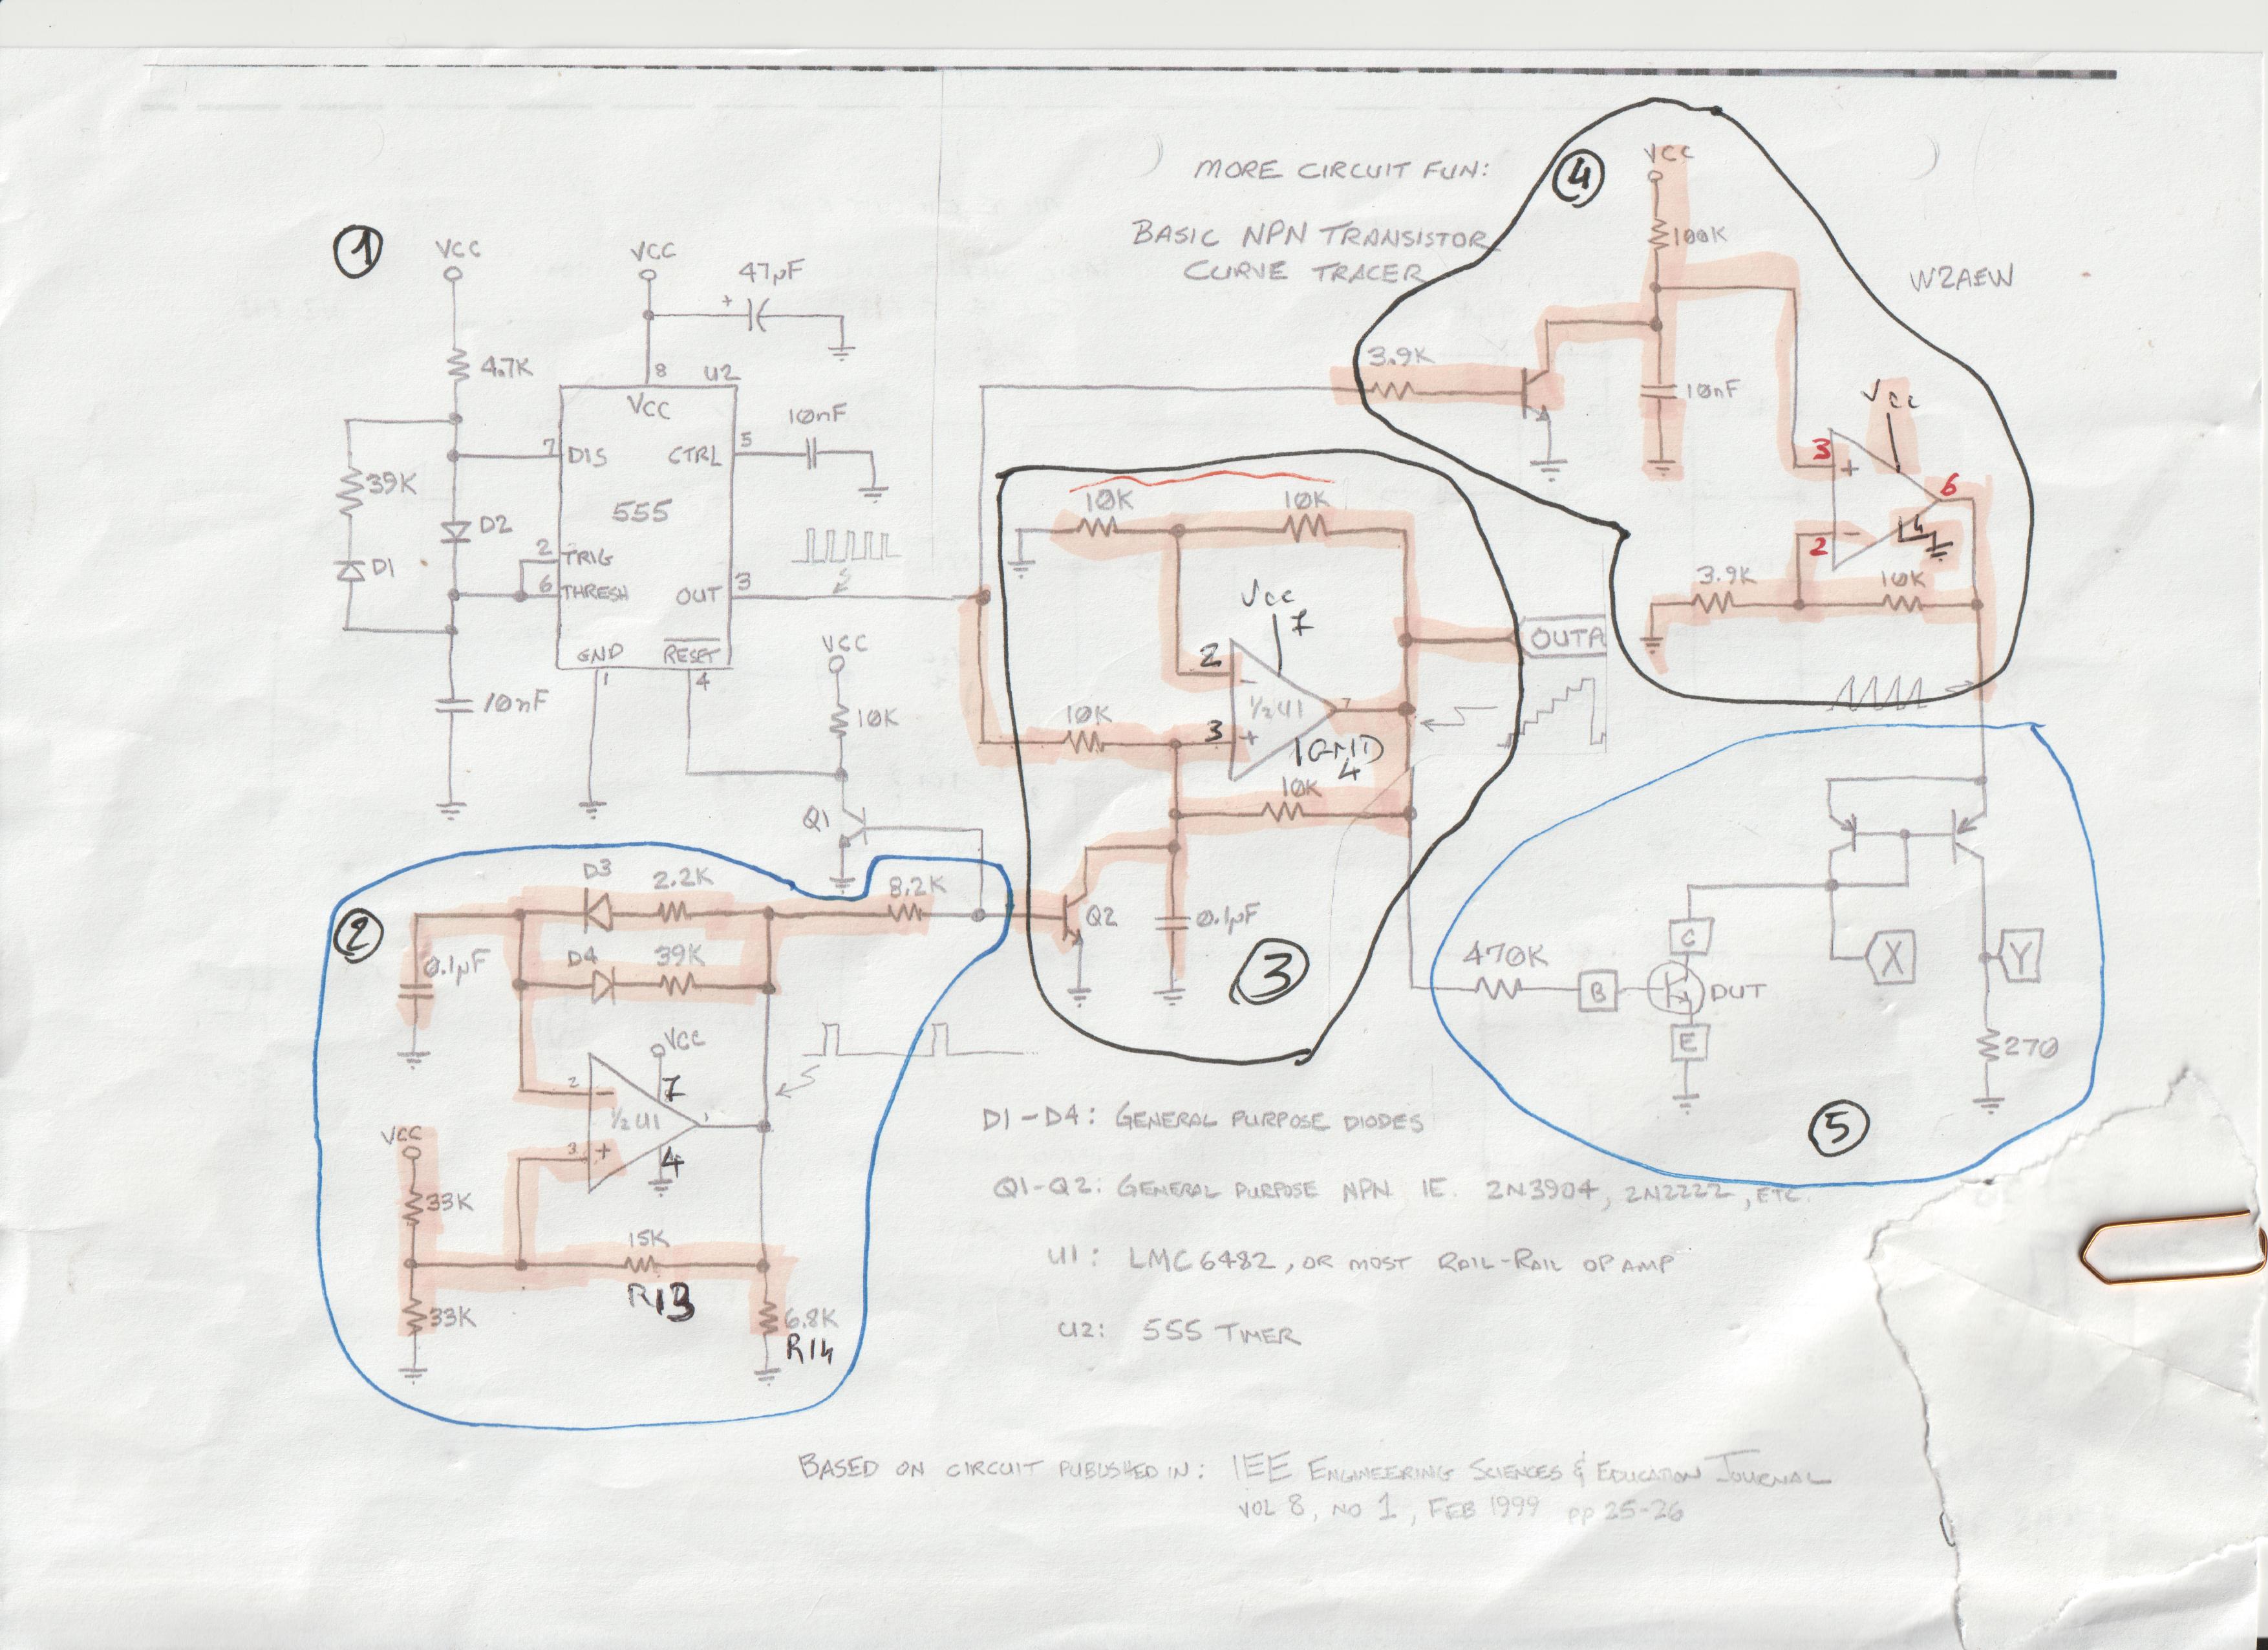 MORE CIRCUIT FUN:
BASIC NPN TRANSISTOR
CURVE TRACER
W2AEW
1
VCC
4.7K
39K
D1
D2
10nF
VCC
47µF
+
8
U2
VCC
7
DIS
CTRL
5
10nF
555
2
TRIG
6
THRESH
OUT
3
GND
RESET
1
4
VCC
10K
Q1
4
VCC
100K
3.9K
10nF
Vcc
3
+
6
2
-
4
3.9K
10K
10K
10K
Vcc
7
2
-
½U1
7
10K
3
+
GND
4
10K
OUTA
Q2
0.1µF
3
2
D3
2.2K
8.2K
D4
39K
0.1µF
VCC
7
2
-
½U1
1
3
+
4
VCC
33K
15K
R13
33K
6.8K
R14
470K
B
C
E
DUT
X
Y
270
5
D1-D4: GENERAL PURPOSE DIODES
Q1-Q2: GENERAL PURPOSE NPN IE. 2N3904, 2N2222, ETC.
U1: LMC6482, OR MOST RAIL-RAIL OP AMP
U2: 555 TIMER
BASED ON CIRCUIT PUBLISHED IN: IEE ENGINEERING SCIENCES & EDUCATION JOURNAL
VOL 8, NO 1, FEB 1999 pp 25-26